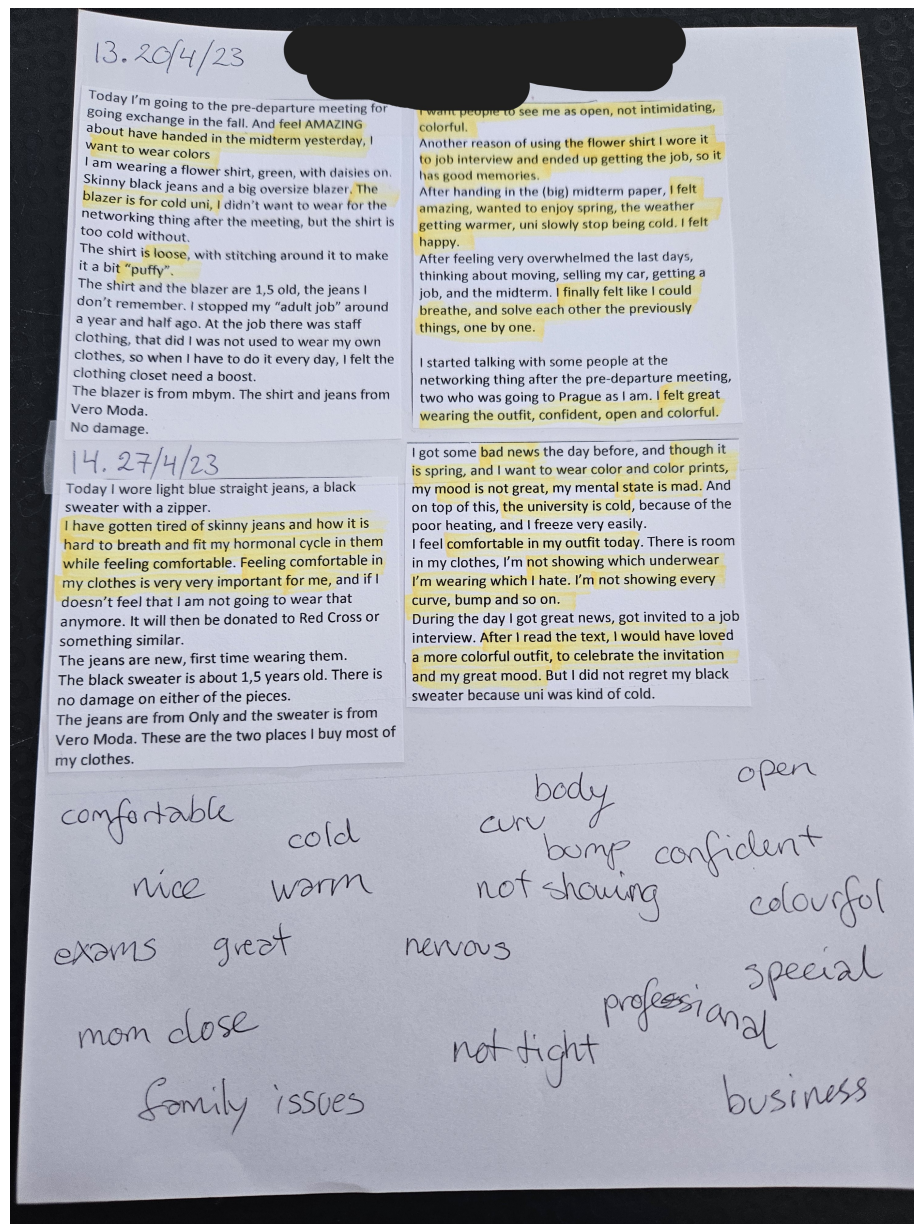 13. 20/4/23
Today I'm going to the pre-departure meeting for
going exchange in the fall. And feel AMAZING
about have handed in the midterm yesterday, I
want to wear colors
I am wearing a flower shirt, green, with daisies on.
Skinny black jeans and a big oversize blazer. The
blazer is for cold uni, I didn't want to wear for the
networking thing after the meeting, but the shirt is
too cold without.
The shirt is loose, with stitching around it to make
it a bit "puffy".
The shirt and the blazer are 1,5 old, the jeans I
don't remember. I stopped my "adult job" around
a year and half ago. At the job there was staff
clothing, that did I was not used to wear my own
clothes, so when I have to do it every day, I felt the
clothing closet need a boost.
The blazer is from mbym. The shirt and jeans from
Vero Moda.
No damage.
I want people to see me as open, not intimidating,
colorful.
Another reason of using the flower shirt I wore it
to job interview and ended up getting the job, so it
has good memories.
After handing in the (big) midterm paper, I felt
amazing, wanted to enjoy spring, the weather
getting warmer, uni slowly stop being cold. I felt
happy.
After feeling very overwhelmed the last days,
thinking about moving, selling my car, getting a
job, and the midterm. I finally felt like I could
breathe, and solve each other the previously
things, one by one.
I started talking with some people at the
networking thing after the pre-departure meeting,
two who was going to Prague as I am. I felt great
wearing the outfit, confident, open and colorful.
14. 27/4/23
Today I wore light blue straight jeans, a black
sweater with a zipper.
I have gotten tired of skinny jeans and how it is
hard to breath and fit my hormonal cycle in them
while feeling comfortable. Feeling comfortable in
my clothes is very very important for me, and if I
doesn't feel that I am not going to wear that
anymore. It will then be donated to Red Cross or
something similar.
The jeans are new, first time wearing them.
The black sweater is about 1,5 years old. There is
no damage on either of the pieces.
The jeans are from Only and the sweater is from
Vero Moda. These are the two places I buy most of
my clothes.
I got some bad news the day before, and though it
is spring, and I want to wear color and color prints,
my mood is not great, my mental state is mad. And
on top of this, the university is cold, because of the
poor heating, and I freeze very easily.
I feel comfortable in my outfit today. There is room
in my clothes, I'm not showing which underwear
I'm wearing which I hate. I'm not showing every
curve, bump and so on.
During the day I got great news, got invited to a job
interview. After I read the text, I would have loved
a more colorful outfit, to celebrate the invitation
and my great mood. But I did not regret my black
sweater because uni was kind of cold.
comfortable
cold
nice warm
exams great
mom close
family issues
body
curv
bump
not showing
nervous
not tight
open
confident
colourful
special
professional
business